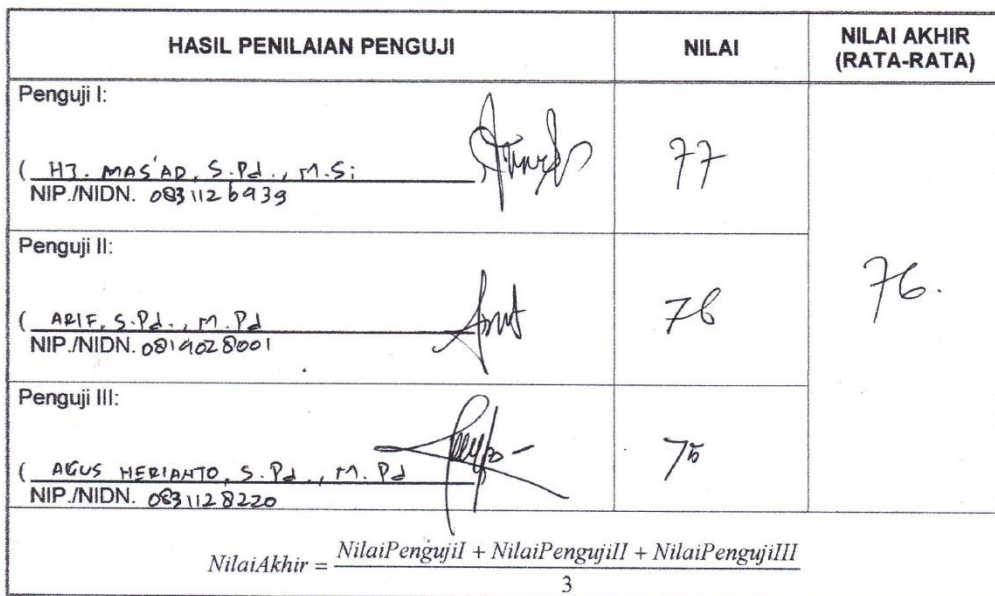 HASIL PENILAIAN PENGUJI NILAI NILAI AKHIR (RATA-RATA)
Penguji I:
( HJ. MAS'AD, S.Pd., M.Si 77
NIP./NIDN. 0831126939
Penguji II:
( ARIF, S.Pd., M.Pd 76 76.
NIP./NIDN. 0819028001
Penguji III:
( AGUS HERIANTO, S.Pd., M.Pd 75
NIP./NIDN. 0831128220
NilaiAkhir = NilaiPengujiI + NilaiPengujiII + NilaiPengujiIII
3